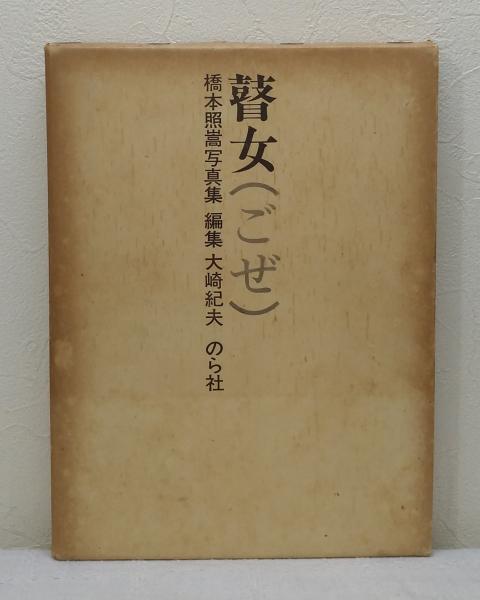 瞽女(ごぜ)
橋本照嵩写真集 編集 大崎紀夫 のら社